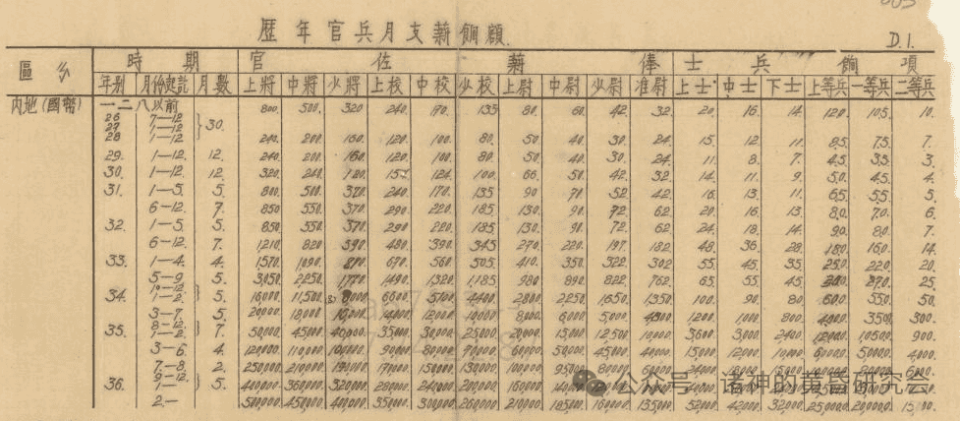 歷年官兵月支薪餉額.
D.1.
區分 時期 官佐薪俸 士兵餉項
年別 月份起訖 月數 上將 中將 少將 上校 中校 少校 上尉 中尉 少尉 准尉 上士 中士 下士 上等兵 一等兵 二等兵
內地(國幣) 一二八以前 800. 500. 320 240. 170. 135 80. 60. 42. 32. 20. 16. 14. 10.
26 7—12
27 1—12 30.
28 1—12 240. 200. 160 120. 100. 80. 50. 40. 30 24. 15. 12. 11. 8.5. 7.5. 7.
29. 1—12. 12. 240. 200 160 120. 100. 80. 50. 40. 30 24. 11. 8. 7. 4.5. 3.5. 3.
30. 1—12. 12. 320. 240. 152. 124. 100. 66. 50. 42. 32. 14. 11. 9. 5.0. 4.5. 4.
31. 1—5. 5. 800. 500. 370 240. 170. 135 90. 52. 42. 16. 13. 11. 6.5. 5.5. 5.
6—12. 7. 850 550. 370. 290. 220. 185. 130. 90. 72. 62. 20. 16. 13. 8.0. 7.0. 6.
32. 1—5. 5. 850 550 370 290 220 185 130. 90. 72. 62. 24. 18. 14. 9.0. 8.0. 7.
6—12. 7. 1210. 820 590. 480. 390. 345 270. 220. 197. 182. 48. 36. 28. 18.0. 16.0. 14.
33. 1—4. 4. 1570. 1090. 670. 560 505. 410. 350. 322. 302. 55. 45. 35. 25.0 22.0. 20.
5—9. 5. 3,050 2,250. 1770 1490. 1320. 1,185 980 890 822. 762. 65. 55. 45. 27.0. 25.
10—12
34. 1—2. 5. 16000. 11,500. 8,000. 6600. 5700. 4400. 2800. 2,250. 1,650. 1,350. 100. 90. 80. 60.0. 55.0. 50.
3—7. 5. 20,000. 18,000. 16,000. 14,000. 12,000. 10,000. 8,000. 6,000. 5,000. 1200. 1,000. 800. 350. 300.
8—12
35. 1—2. 7. 50,000. 45,000. 40,000. 35,000. 30,000. 25,000. 20,000. 15,000. 12,500. 10,000. 3,600. 3,000. 2,400. 1,200. 1,050. 900.
3—6. 4. 120,000. 110,000. 100,000. 90,000. 80,000. 70,000. 60,000. 50,000. 45,000. 40,000. 15,000. 12,000. 10,000. 6,000. 5,000. 4,000.
7—8. 2. 250,000. 210,000. 190,000. 170,000. 150,000. 130,000. 100,000.
9—12.
36. 1— 5. 400,000. 360,000. 320,000. 280,000. 240,000. 200,000. 160,000.
2.— 500,000. 450,000. 400,000. 350,000. 300,000. 260,000. 210,000. 185,000. 160,000. 135,000. 52,000. 42,000. 32,000. 25,000. 20,000.
公众号·诸神的黄昏研究会